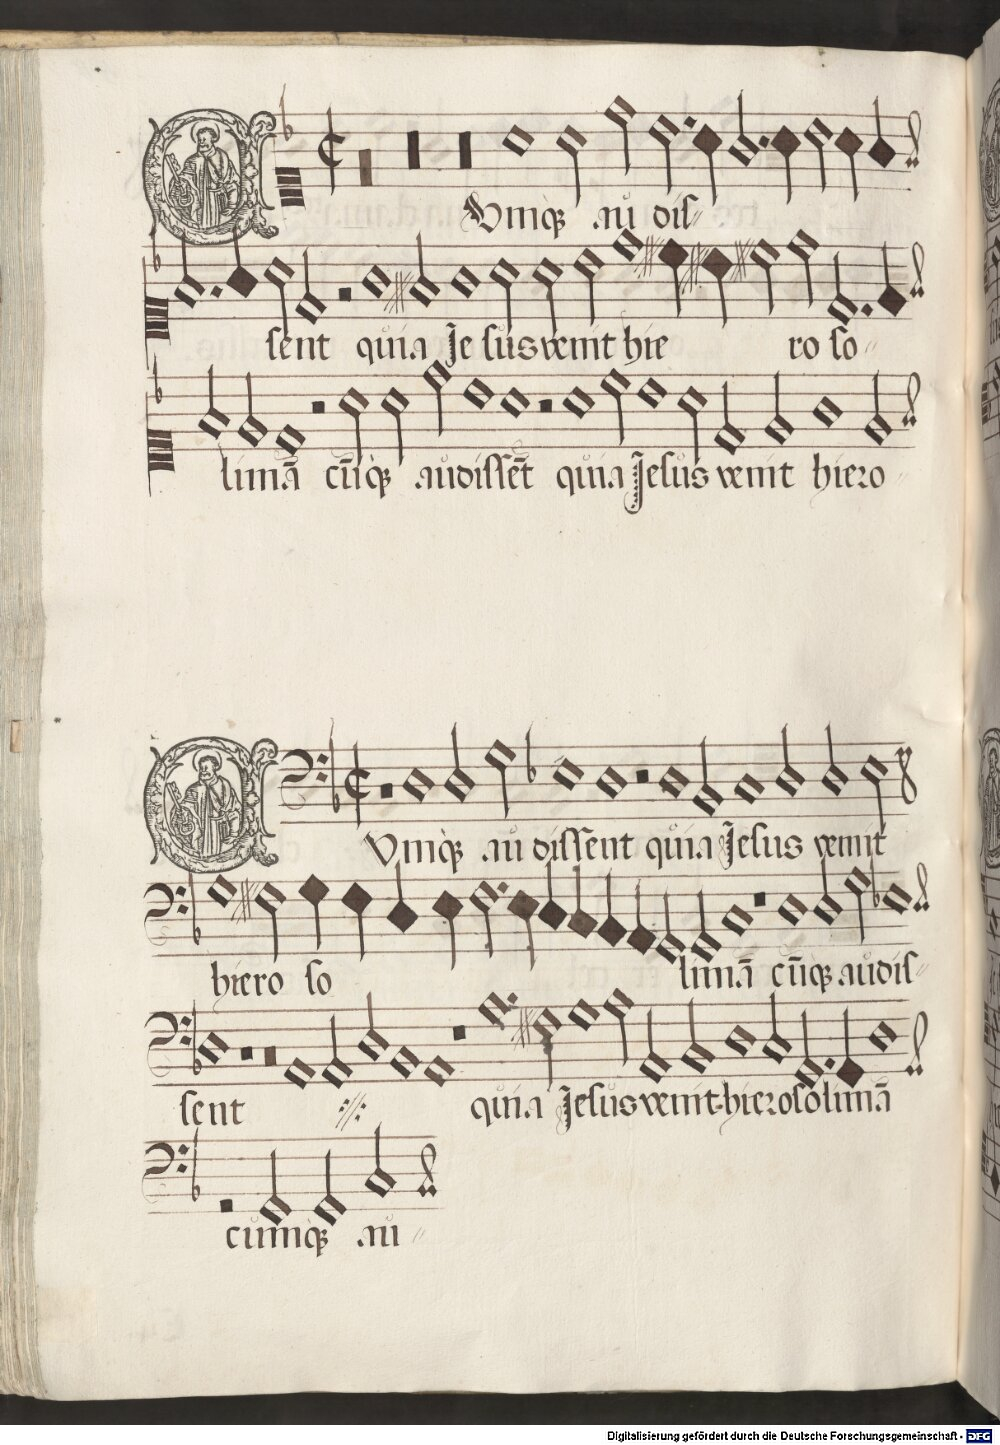 CUmq̃ꝫ au dis⸗
sent quia Je sus venit hie ro so⸗
limā cūq̃ꝫ audissēt quia Jesus venit hiero⸗
CUmq̃ꝫ au dissent quia Jesus venit
hiero so limā cūq̃ꝫ audis⸗
sent ://: quia Jesus venit hierosolimā
cumq̃ꝫ au⸗
Digitalisierung gefördert durch die Deutsche Forschungsgemeinschaft - DFG